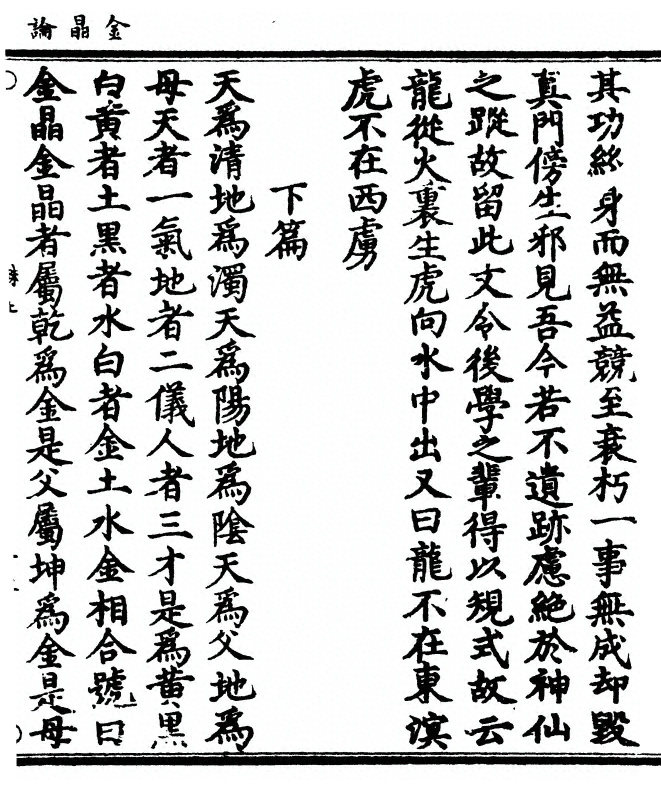 金晶論
其功終身而無益競至衰朽一事無成却毀
真門傍生邪見吾今若不遺跡慮絶於神仙
之蹤故留此文令後學之輩得以規式故云
龍從火裏生虎向水中出又曰龍不在東溟
虎不在西虜
下篇
天爲清地爲濁天爲陽地爲陰天爲父地爲
母天者一氣地者二儀人者三才是爲黄黑
白黄者土黑者水白者金土水金相合號曰
金晶金晶者屬乾爲金是父屬坤爲金是母